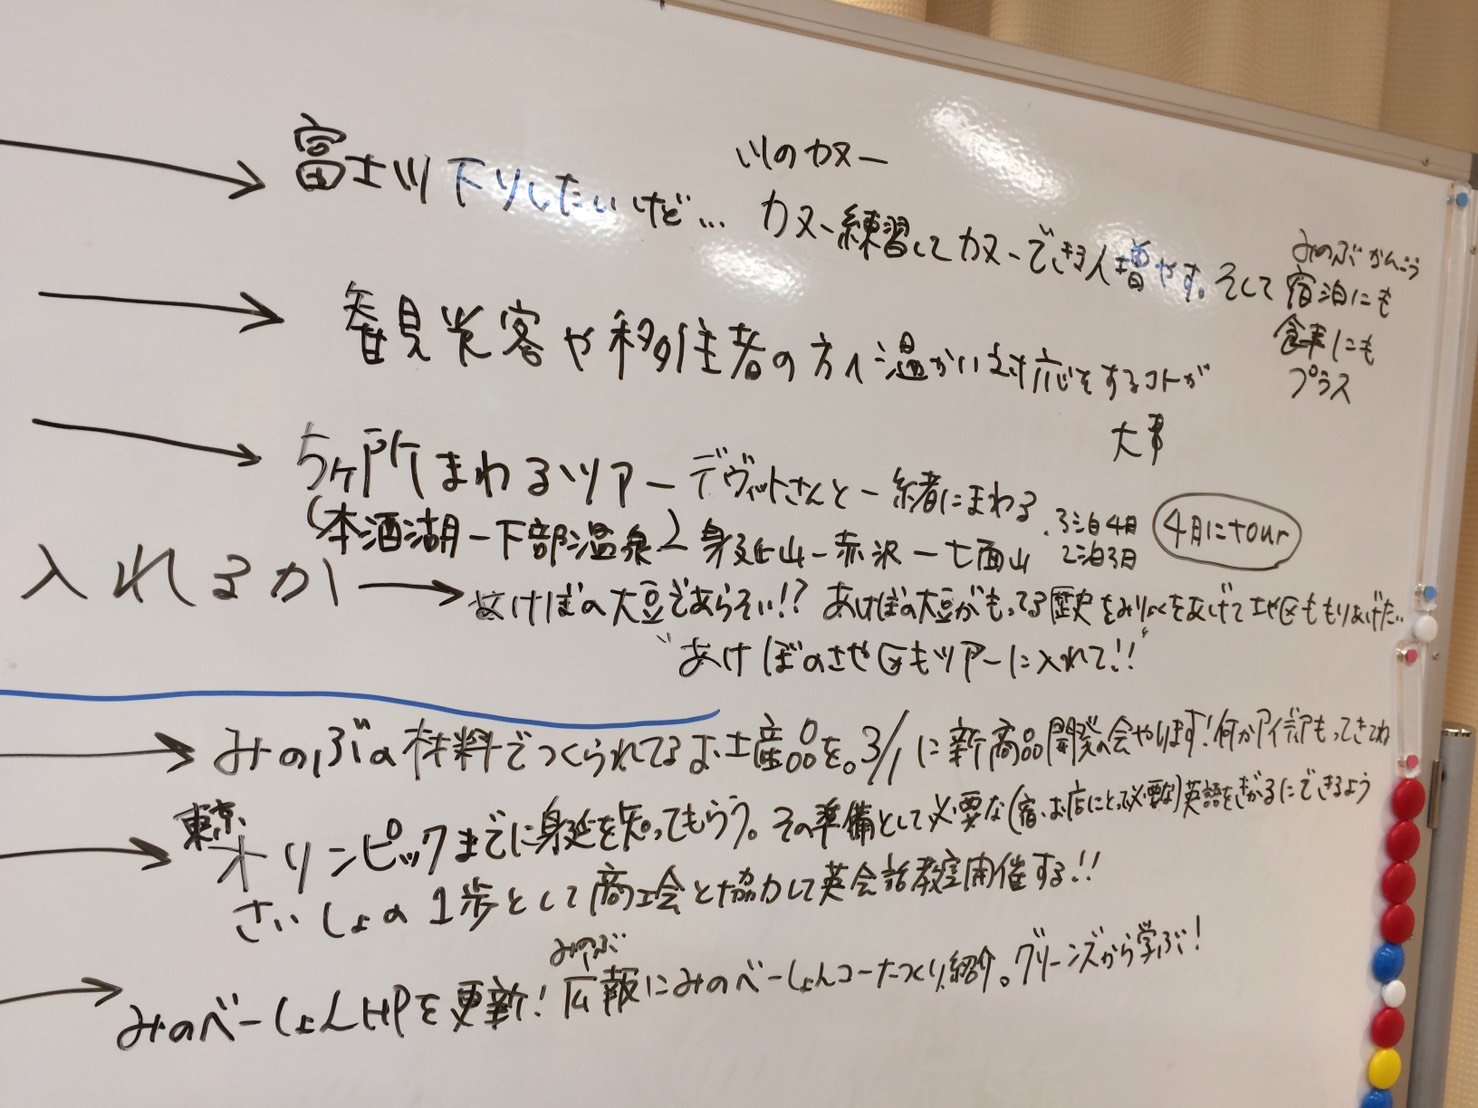 川のカヌー
富士川下りしたいけど… カヌー練習してカヌーできる人増やす。そして
みのぶかんこう
宿泊にも
食事にも
プラス
観光客や移住者の方へ温かい対応をするコトが
大事
5ヶ所まわるツアー デヴィットさんと一緒にまわる
(本酒湖ー下部温泉ー身延山ー赤沢ー七面山
・3泊4日
2泊3日
4月にtour
入れるか
あけぼの大豆であらそい!? あけぼの大豆がもってる歴史をみりょくをあげて地区ももりあげた…
"あけぼのさ地区もツアーに入れて!!"
みのぶの材料でつくられてるお土産品を。3/1に新商品開発の会やります!何かアイディアもってきてね
東京
オリンピックまでに身延を知ってもらう。その準備として必要な(宿・お店にとって必要な)英語をきがるにできるよう
さいしょの1歩として商工会と協力して英会話教室開催する!!
みのぶ
みのべーしょんHPを更新! 広報にみのべーしょんコーナーつくり紹介。グリーンズから学ぶ!